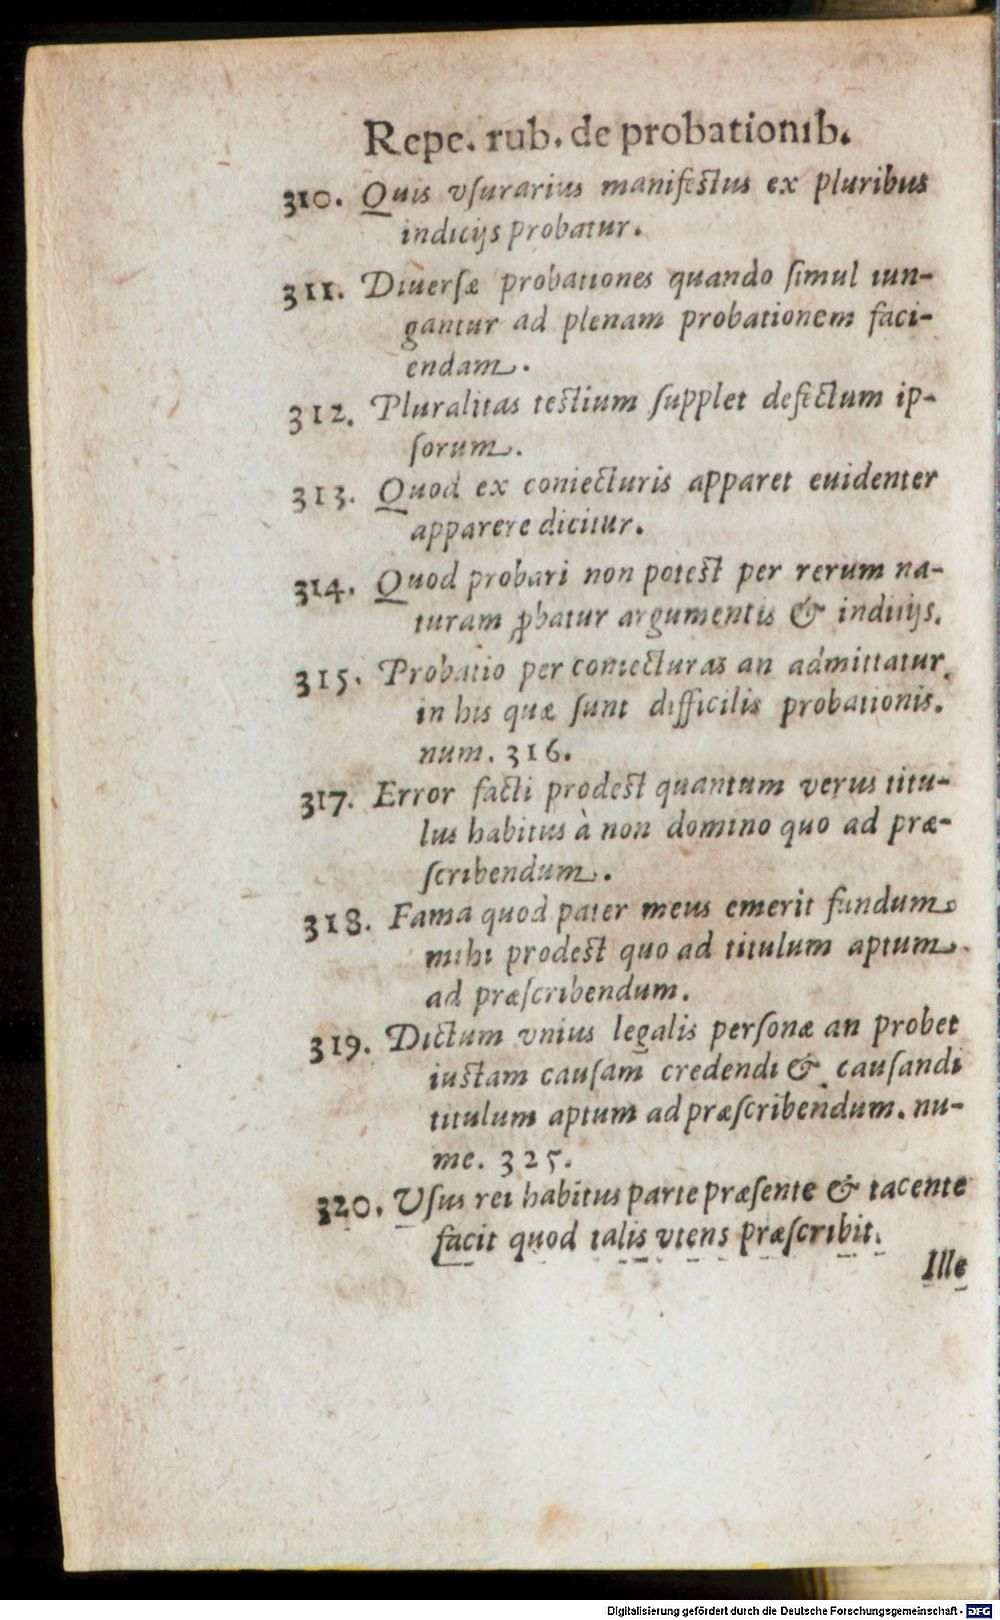 Repe. rub. de probationib.
310. Quis vſurarius manifeſtus ex pluribus
indicijs probatur.
311. Diuerſæ probationes quando ſimul iun-
gantur ad plenam probationem faci-
endam.
312. Pluralitas teſtium ſupplet defectum ip-
ſorum.
313. Quod ex coniecturis apparet euidenter
apparere dicitur.
314. Quod probari non poteſt per rerum na-
turam ꝓbatur argumentis & indicijs.
315. Probatio per coniecturas an admittatur
in his quæ ſunt difficilis probationis.
num. 316.
317. Error facti prodeſt quantum verus titu-
lus habitus à non domino quo ad præ-
ſcribendum.
318. Fama quod pater meus emerit fundum
mihi prodeſt quo ad titulum aptum
ad præſcribendum.
319. Dictum vnius legalis perſonæ an probet
iuſtam cauſam credendi & cauſandi
titulum aptum ad præſcribendum. nu-
me. 325.
320. Uſus rei habitus parte præſente & tacente
facit quod talis vtens præſcribit.
Ille
Digitalisierung gefördert durch die Deutsche Forschungsgemeinschaft - DFG